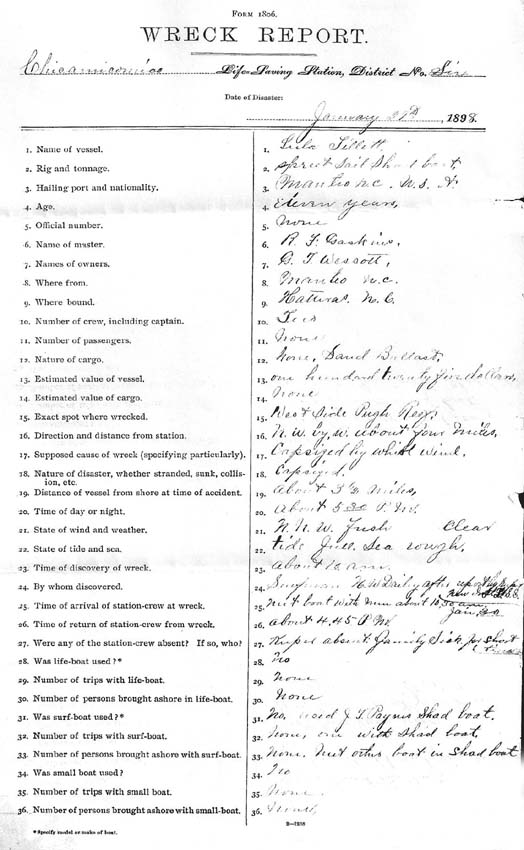 FORM 1806.
WRECK REPORT.
Chicamicomico Life-Saving Station, District No. Six
Date of Disaster:
January 21st, 1898.
1. Name of vessel. 1. Lula Tillett
2. Rig and tonnage. 2. Sprit Sail Shad boat,
3. Hailing port and nationality. 3. Manteo N.C. U.S. A.
4. Age. 4. Eleven years,
5. Official number. 5. None
6. Name of master. 6. R. F. Gaskins,
7. Names of owners. 7. B. T. Wescott,
8. Where from. 8. Manteo N.C.
9. Where bound. 9. Hatteras. N. C.
10. Number of crew, including captain. 10.
11. Number of passengers. 11. None
12. Nature of cargo. 12. None, Sand Ballast,
13. Estimated value of vessel. 13. one hundred twenty five dollars,
14. Estimated value of cargo. 14. None
15. Exact spot where wrecked. 15. West Side Pugh Reef,
16. Direction and distance from station. 16. N. W. by W. about four miles,
17. Supposed cause of wreck (specifying particularly). 17. Capsized by whirl wind.
18. Nature of disaster, whether stranded, sunk, collis-
ion, etc. 18. Capsized.
19. Distance of vessel from shore at time of accident. 19. About 3½ miles,
20. Time of day or night. 20. About 5 30 P. M.
21. State of wind and weather. 21. N. N. W. Fresh Clear
22. State of tide and sea. 22. tide full. Sea rough,
23. Time of discovery of wreck. 23. about 10 a.m.
24. By whom discovered. 24. Surfman N W Daily after
25. Time of arrival of station-crew at wreck. 25. Met boat with men about 10 30 am Jan,
26. Time of return of station-crew from wreck. 26. about 4.45 P. M.
27. Were any of the station-crew absent? If so, who? 27. Keeper absent family Sick for short time
28. Was life-boat used?* 28. No
29. Number of trips with life-boat. 29. None
30. Number of persons brought ashore in life-boat. 30. None
31. Was surf-boat used?* 31. No, used J. T. Paynes Shad boat.
32. Number of trips with surf-boat. 32. None, one with Shad boat
33. Number of persons brought ashore with surf-boat. 33. None. Met other boat in Shad boat
34. Was small boat used? 34. No
35. Number of trips with small boat. 35. None.
36. Number of persons brought ashore with small-boat. 36. None,
*Specify model or make of boat.